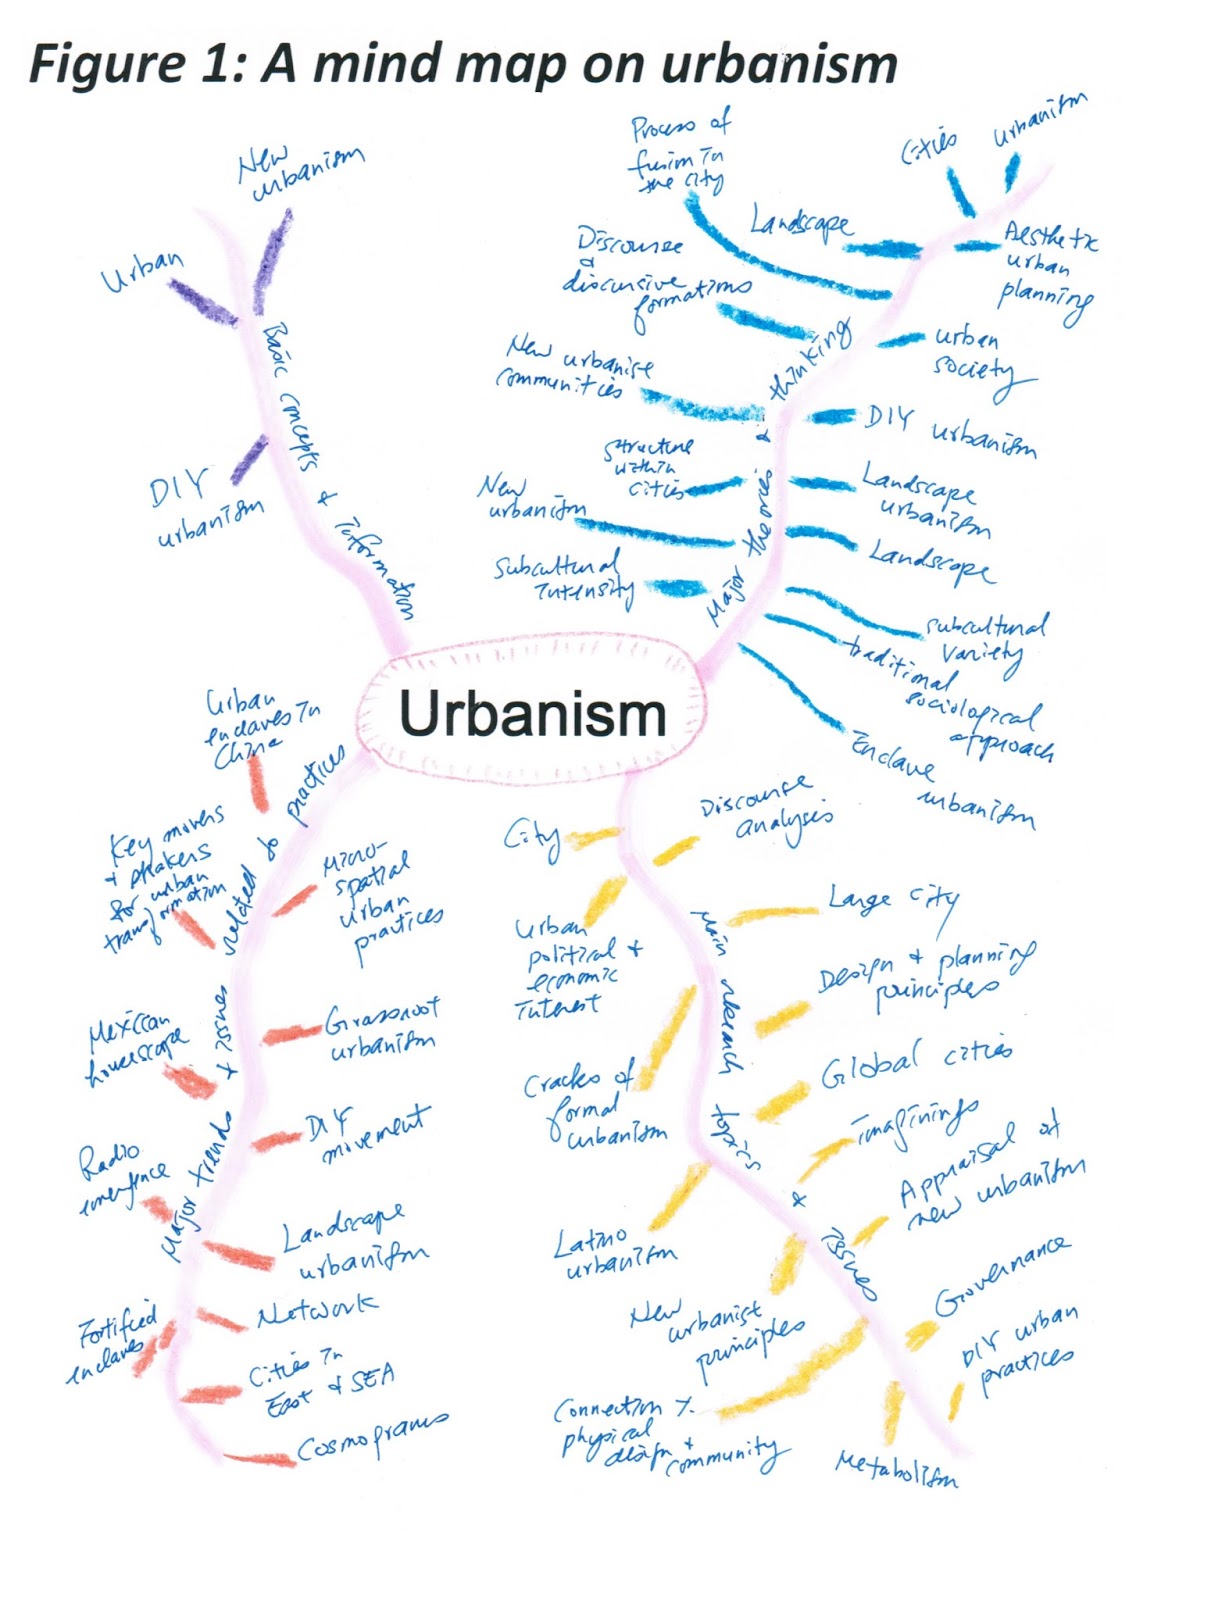 Figure 1: A mind map on urbanism
Urbanism
Basic concepts & information
New
urbanism
Urban
DIY
urbanism
Major theories & thinking
Process of
fusion in
the city
Cities
urbanism
Landscape
Aesthetic
urban
planning
Discourse
&
discursive
formations
urban
society
New urbanist
communities
DIY urbanism
Structure
within
cities
Landscape
urbanism
New
urbanism
Landscape
Subcultural
intensity
Subcultural
variety
traditional
sociological
approach
Enclave
urbanism
Major trends & issues related to practices
Urban
enclaves in
China
Key movers
&
for urban
transformation
Micro-
spatial
urban
practices
Mexican
Grassroot
urbanism
DIY
movement
Radio
Landscape
urbanism
Network
Fortified
enclaves
Cities in
East & SEA
Main research topics & issues
City
Discourse
analysis
Urban
political &
economic
interest
Large city
Design & planning
principles
Cracks of
formal
urbanism
Global cities
imaginings
Appraisal of
new urbanism
Latino
urbanism
New
urbanist
principles
Governance
DIY urban
practices
Connection
physical
design &
community
Metabolism